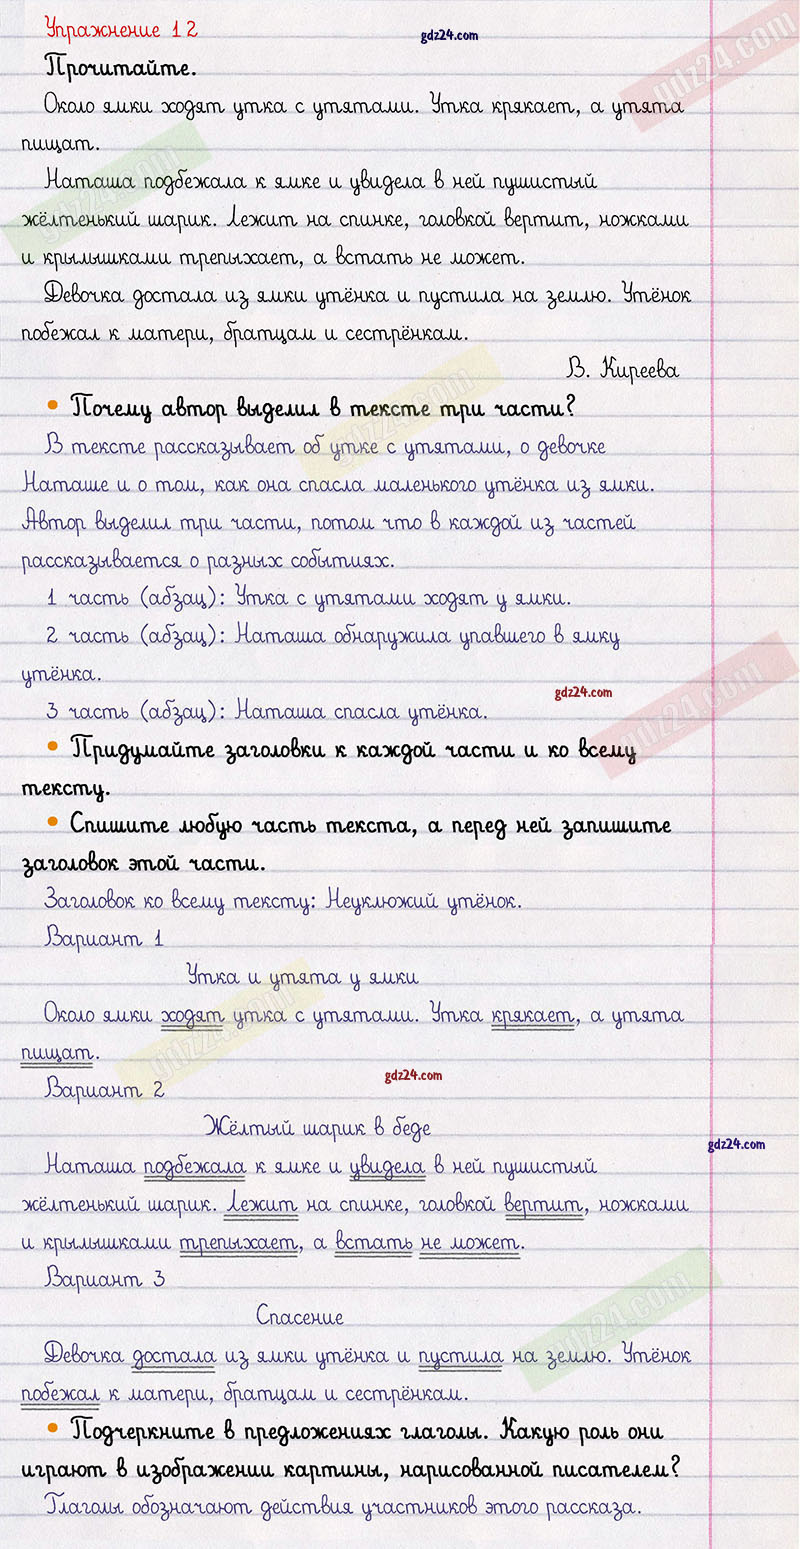 Упражнение 12
gdz24.com
Прочитайте.
Около ямки ходят утка с утятами. Утка крякает, а утята
пищат.
Наташа подбежала к ямке и увидела в ней пушистый
жёлтенький шарик. Лежит на спинке, головкой вертит, ножками
и крылышками трепыхает, а встать не может.
Девочка достала из ямки утёнка и пустила на землю. Утёнок
побежал к матери, братцам и сестрёнкам.
В. Киреева
• Почему автор выделил в тексте три части?
В тексте рассказывает об утке с утятами, о девочке
Наташе и о том, как она спасла маленького утёнка из ямки.
Автор выделил три части, потом что в каждой из частей
рассказывается о разных событиях.
1 часть (абзац): Утка с утятами ходят у ямки.
2 часть (абзац): Наташа обнаружила упавшего в ямку
утёнка.
gdz24.com
3 часть (абзац): Наташа спасла утёнка.
• Придумайте заголовки к каждой части и ко всему
тексту.
• Спишите любую часть текста, а перед ней запишите
заголовок этой части.
Заголовок ко всему тексту: Неуклюжий утёнок.
Вариант 1
Утка и утята у ямки
Около ямки ходят утка с утятами. Утка крякает, а утята
пищат.
gdz24.com
Вариант 2
Жёлтый шарик в беде
gdz24.com
Наташа подбежала к ямке и увидела в ней пушистый
жёлтенький шарик. Лежит на спинке, головкой вертит, ножками
и крылышками трепыхает, а встать не может.
Вариант 3
Спасение
Девочка достала из ямки утёнка и пустила на землю. Утёнок
побежал к матери, братцам и сестрёнкам.
• Подчеркните в предложениях глаголы. Какую роль они
играют в изображении картины, нарисованной писателем?
Глаголы обозначают действия участников этого рассказа.
gdz24.com
gdz24.com
gdz24.com
gdz24.com
gdz24.com
gdz24.com